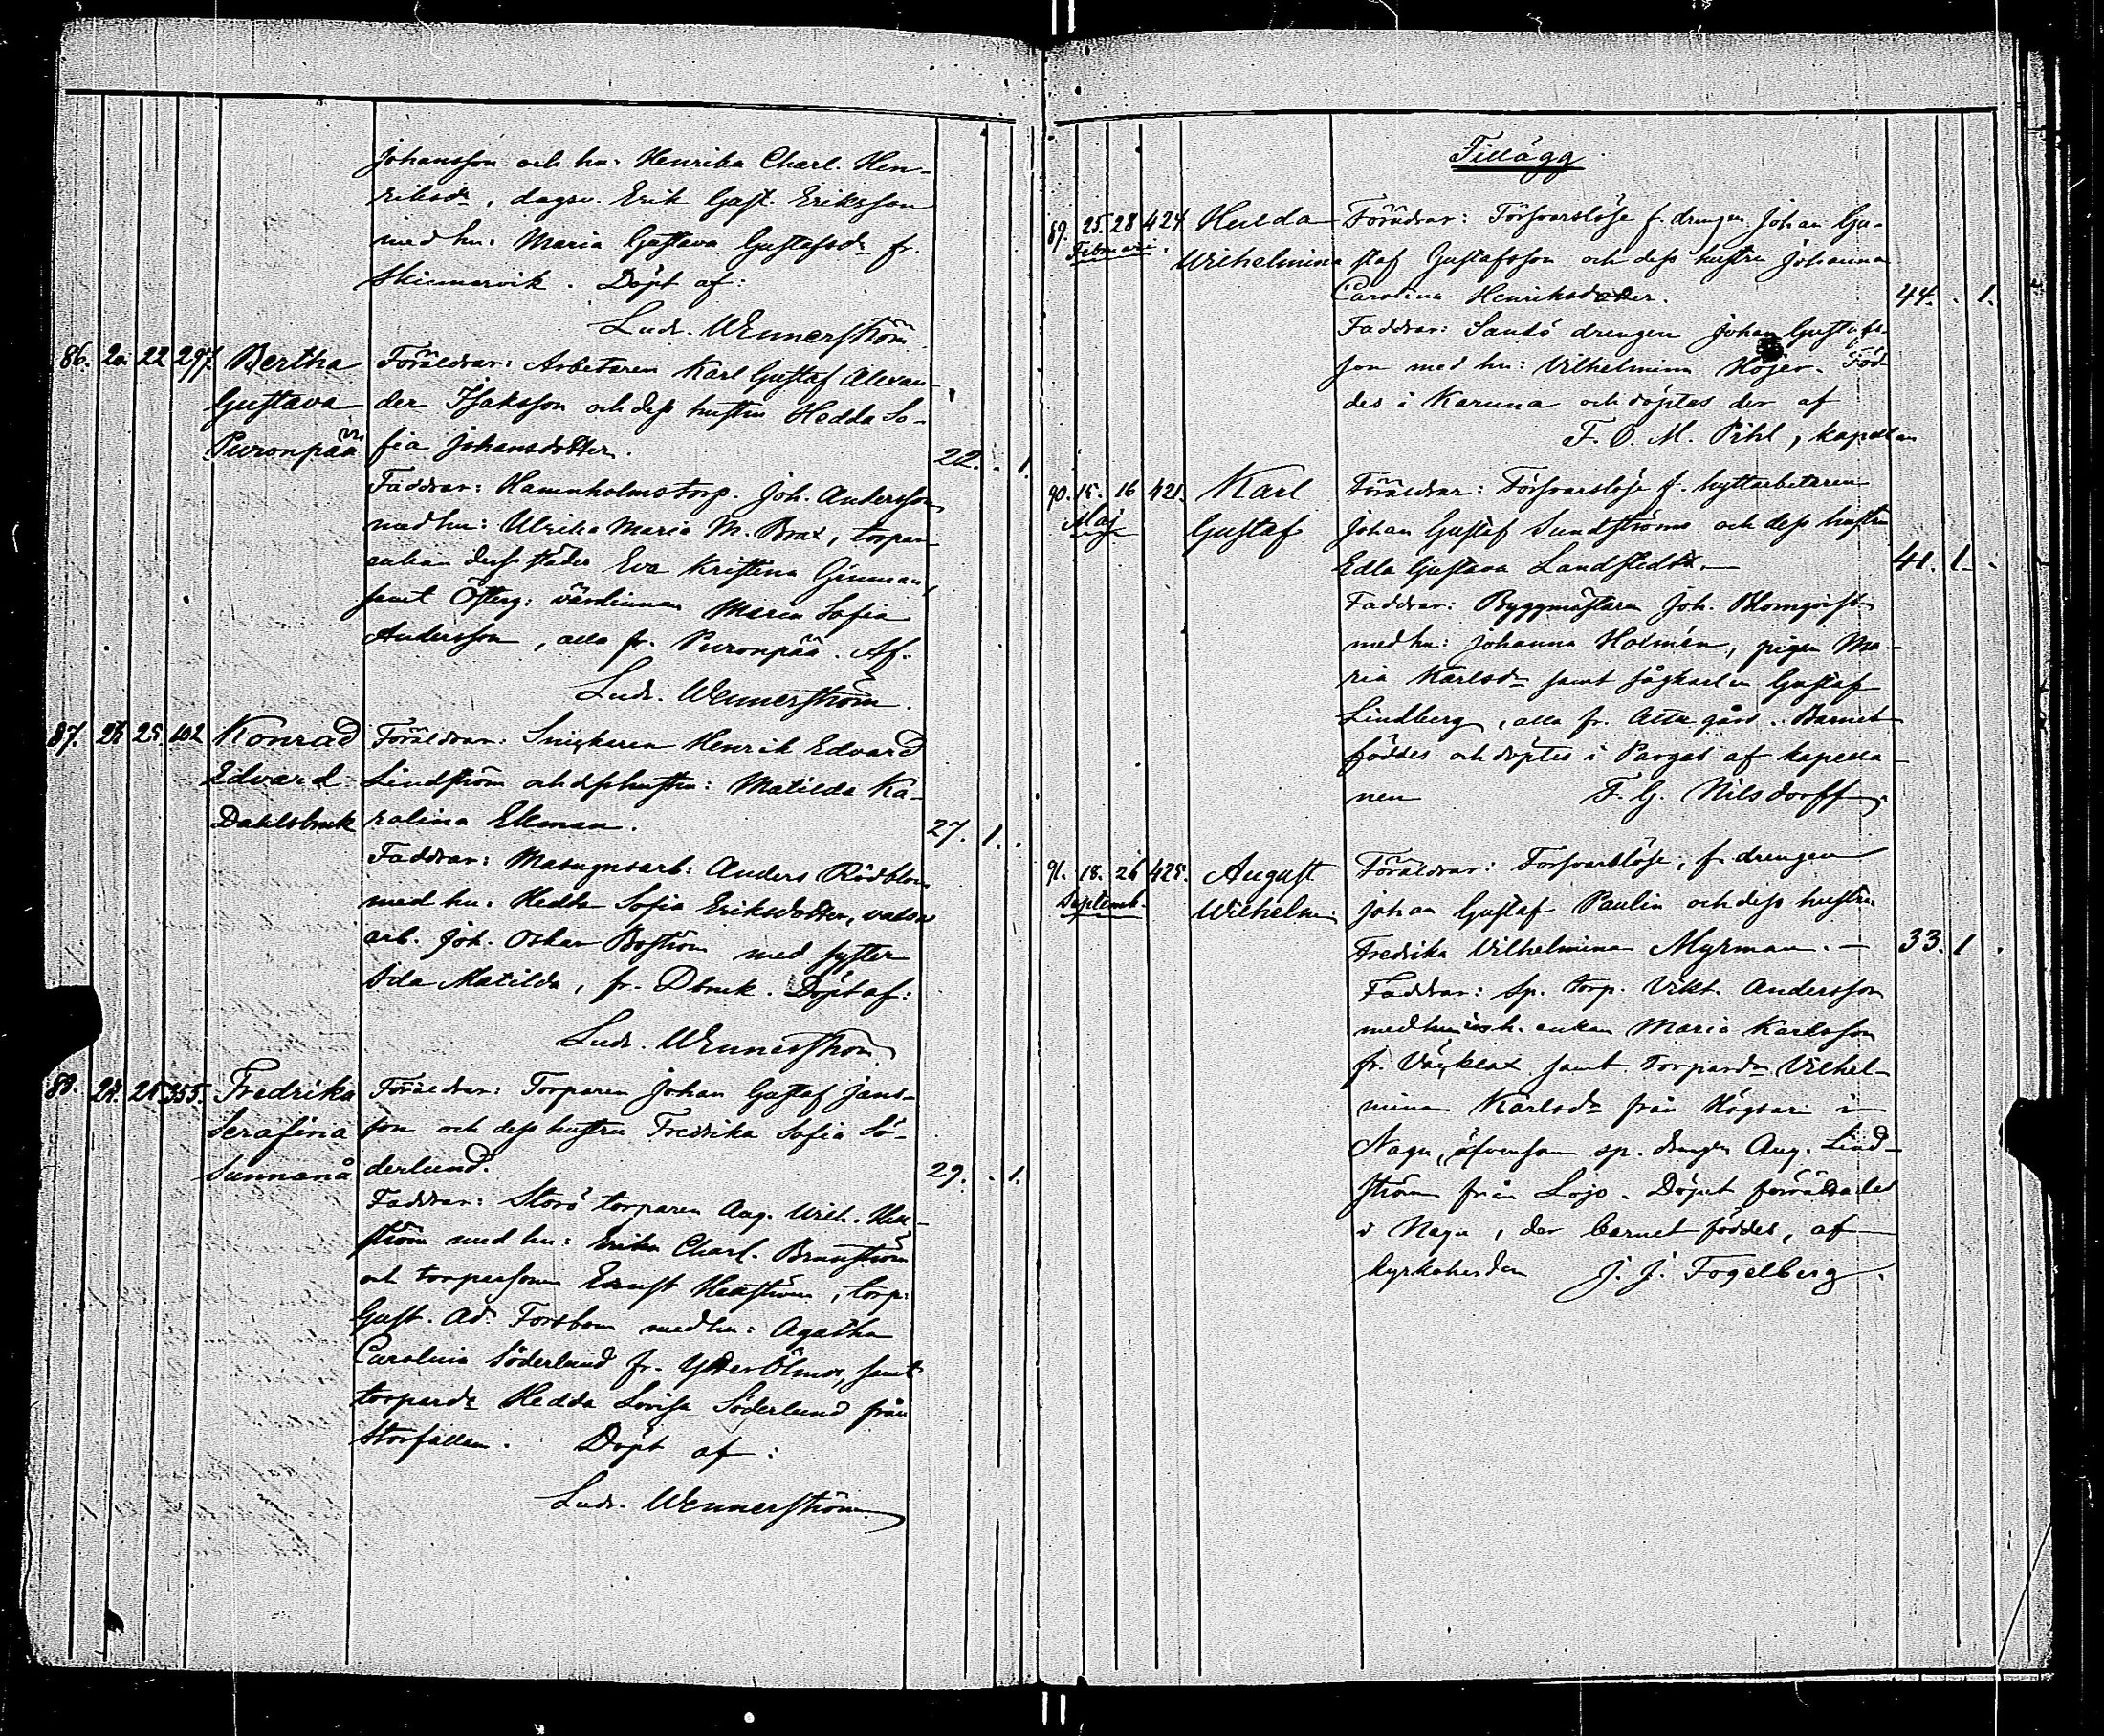 Johansson och hu: Henrika Charl. Hen-
riksdr, dagsv. Erik Gust. Eriksson
med hu: Maria Gustava Gustafsdr fr.
Skinnarvik. Döpt af:
Ludv. Wennerström.
86. 20. 22 297. Bertha Föräldrar: Arbetaren Karl Gustaf Alexan-
Gustava der Isaksson och dess hustru Hedda So-
Puronpää fia Johansdotter. 22. . 1.
Faddrar: Hamnholmstorp. Joh. Andersson
med hu: Ulrika Maria M. Brax, torpare
enkan dersstädes Eva Kristina Ginman,
samt Österg: värdinnan Maria Sofia
Andersson, alla fr. Puronpää. Af:
Ludv. Wennerström.
87. 25. 102 Konrad Föräldrar: Snickaren Henrik Edvard
Edvard Lindström och dess hustru: Matilda Ka-
Dahlsbruk rolina Ekman. 27. 1. .
Faddrar: Masugnsarb: Anders Rödblom
med hu. Hedda Sofia Eriksdotter, vals
arb. Joh. Oskar Boström med syster
Ida Matilda, fr. Dbruk. Döpt af:
Ludv. Wennerström
88. 24. 26 355. Fredrika Föräldrar: Torparen Johan Gustaf Jans-
Serafina son och dess hustru Fredrika Sofia Sö-
Sunnanå derlund. 29. . 1.
Faddrar: Storö torparen Aug. Wilh. Hell-
ström med hu: Erika Charl. Brunström
och torparsonen Ernst Hellström, torp:
Gust. Ad. Forsbom med hu: Agatha
Carolina Söderlund fr. Ytter Ölmos, samt
torpardr Hedda Lovisa Söderlund från
Storfallen. Döpt af:
Ludv. Wennerström.
Tillägg
89. 25. 28 424. Hulda Föräldrar: Försvarslöse f. drengen Johan Gu-
Februari. Wilhelmina staf Gustafsson och dess hustru Johanna
Carolina Henriksdotter. 44. . 1.
Faddrar: Sandö drengen Johan Gustafs-
son med hu: Vilhelmina Höjer. Föd-
des i Karuna och döptes der af
F. O. M. Pihl, kapellan
90. 15. 16 421. Karl Föräldrar: Försvarslöse f. hyttarbetaren
Maj Gustaf Johan Gustaf Sundström och dess hustru
Edla Gustava Landstedt. 41. 1. .
Faddrar: Byggmästaren Joh. Blomqvist
med hu: Johanna Holmén, pigan Ma-
ria Karlsdr samt sågkarlen Gustaf
Lindberg, alla fr. Attu gård. Barnet
föddes och döptes i Pargas af kapella-
nen F. G. Nilsdorff.
91. 18. 26 425. August Föräldrar: Försvarslöse, f. drengen
Septemb. Wilhelm Johan Gustaf Paulin och dess hustru
Fredrika Vilhelmina Myrman. 33. 1 .
Faddrar: Sp. torp. Vikt. Andersson
med hu: enkan Maria Karlsson
fr. samt torpardr Vilhel-
mina Karlsdr från Högsar i
Nagu, äfvensom sp. drengen Aug. Lind-
ström från Lojo. Döpt
i Nagu, der barnet föddes, af
kyrkoherden J. J. Fogelberg.